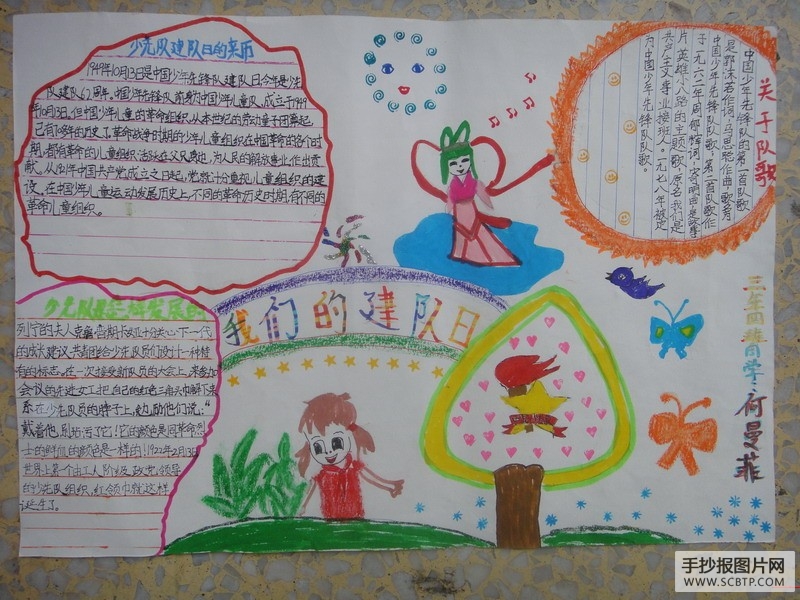 少先队建队日的来历
1949年10月13日是中国少年先锋队建队日今年是少先
队建队62周年。中国少年先锋队前身为中国少年儿童队,成立于1949
年10月13日。但中国少年儿童的革命组织,从本世纪的劳动童子团算起,
己有70多年的历史了,革命战争时期的少年儿童组织在中国革命的各个时
期,都有革命的儿童组织活跃在
为人民的解放事业作出贡
献。从1921年中国共产党成立之日起,党就十分重视儿童组织的建
设。在中国少年儿童运动发展历史上,不同的革命历史时期,有不同的
革命儿童组织。
关于队歌
中国少年先锋队的第一首队歌
是郭沫若作词、马思聪作曲
中国少年先锋队队歌。第二首队歌作
于一九六二年,周郁辉词、寄明曲是故事
片英雄小八路的主题歌,原名我们是
共产主义事业接班人。一九七八年被定
为中国少年先锋队队歌。
我们的建队日
少先队
发展的
列宁的夫人克鲁普斯卡娅十分关心下一代
的成长建议共青团给少先队员们设计一种特
有的标志。在一次接受新队员的大会上,来参加
会议的先进女工把自己的红色三角头巾解下来
系在少先队员的脖子上,勉励他们说:“
戴着他,别玷污了它!它的颜色是同革命烈
士的鲜血的颜色是一样的!1922年2月13日
世界上第一个由工人阶级及政党领导
的少先队组织,红领巾就这样
诞生了。
三年四班同学:
曼菲
手抄报图片网
WWW.SCBTP.COM